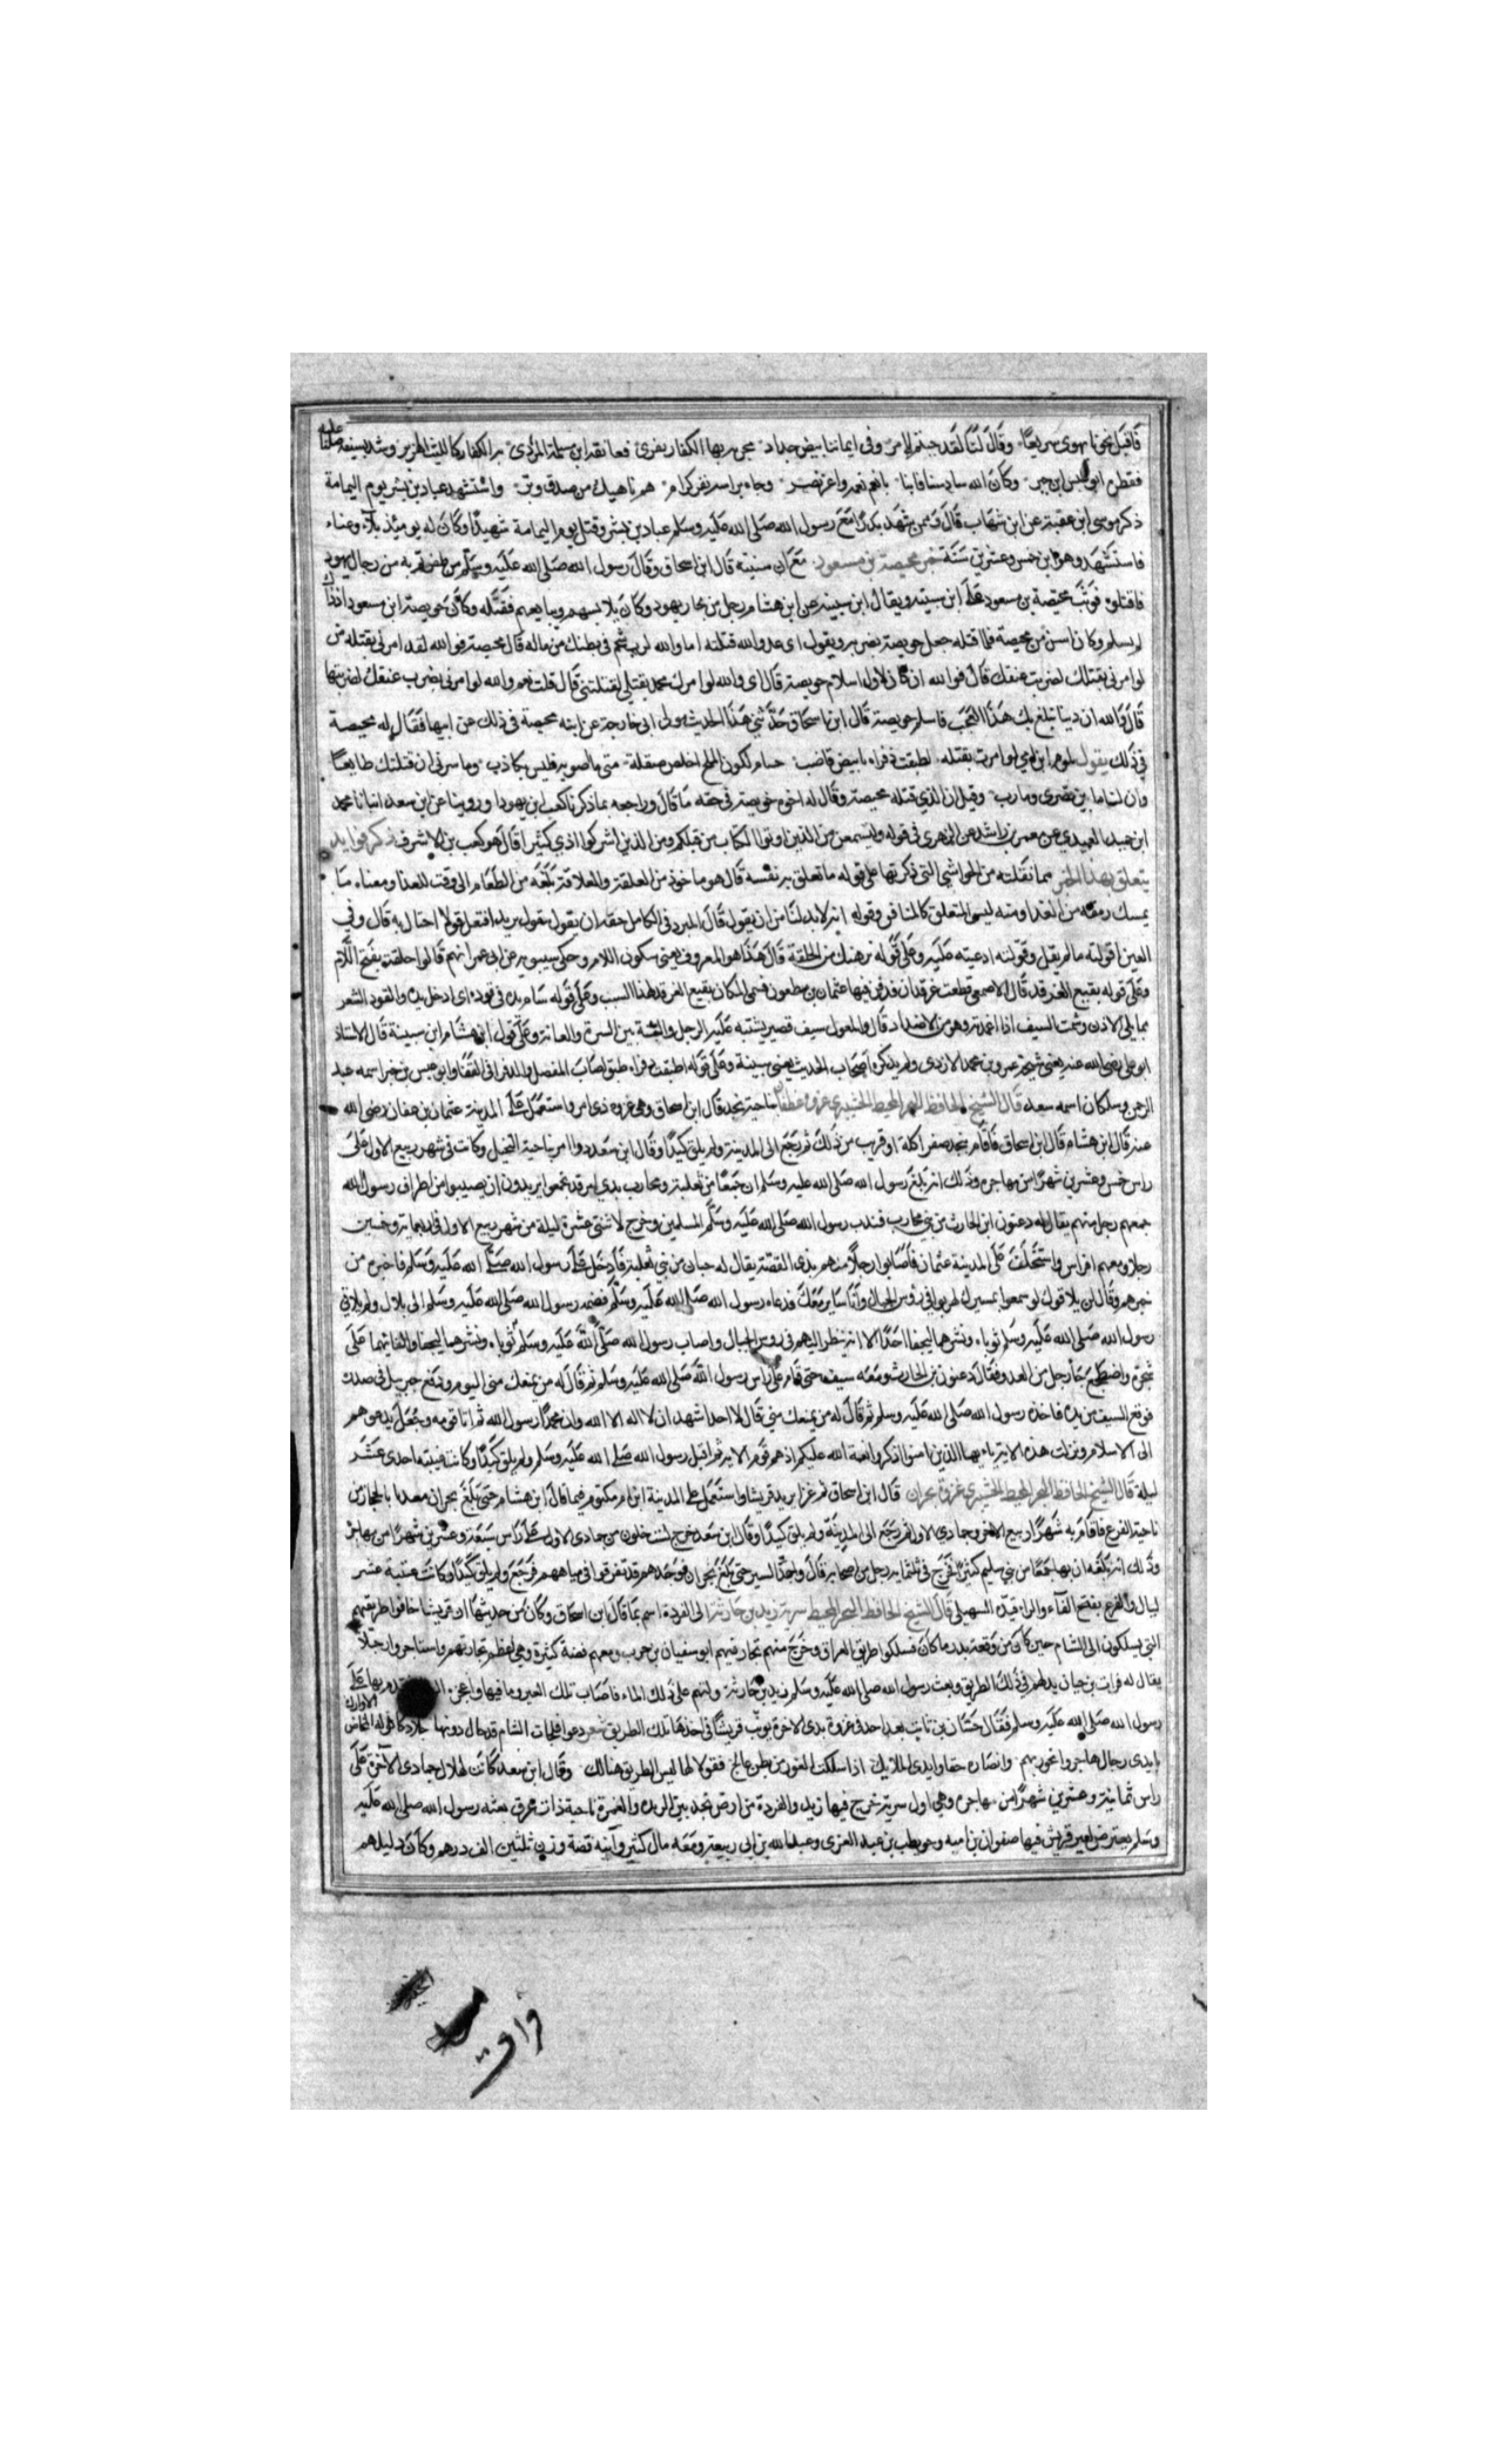 فاقبل نحونا يهوى سريعا وقال لنا لقد جئتم لامر وفى ايماننا بيض حداد مجربة بها الكفار نفرى فعانقه ابن مسلمة المردى به الكفار كالليث الهزبر وشد بسيفه صلتا عليه
فقطره ابو عبس ابن جبر وكان الله سادسنا فابنا بانعم نعمة واعز نصر وجاء براسه نفر كرام هم ناهيك من صدق وبر واستشهد عباد بن بشر يوم اليمامة
ذكر موسى ابن عقبة عن ابن شهاب قال وممن شهد بدرا مع رسول الله صلى الله عليه وسلم عباد بن بشر وقتل يوم اليمامة شهيدا وكان له يومئذ بلاء وغناء
فاستشهد وهو ابن خمس وعشرين سنة خبر محيصة بن مسعود مع ابن سنينه قال ابن اسحاق وقال رسول الله صلى الله عليه وسلم من ظفرتم به من رجال يهود
فاقتلوه فوثب محيصة بن مسعود على ابن سنينه ويقال ابن سبينه عن ابن هشام رجل من تجار يهود وكان يلابسهم ويبايعهم فقتله وكان حويصة ابن مسعود اذ ذاك
لم يسلم وكان اسن من محيصة فلما قتله جعل حويصة يضربه ويقول اى عدو الله قتلته اما والله لرب شحم فى بطنك من ماله قال محيصة فوالله لقد امرنى بقتله من
لو امرنى بقتلك لضربت عنقك قال فوالله ان كان لاول اسلام حويصة قال اى والله لو امرك محمد بقتلى لقتلتنى قال قلت نعم والله لو امرنى بضرب عنقك لضربتها
قال والله ان دينا بلغ بك هذا لعجب فاسلم حويصة قال ابن اسحاق حدثنى هذا الحديث مولى لبنى حارثة عن ابنه محيصة فى ذلك عن ابيها فقال له محيصة
فى ذلك يقول يلوم ابن امي لو امرت بقتله لطبقت ذفراه بابيض قاضب حسام كلون الملح اخلص صقله متى ما اصوبه فليس بكاذب وما سرنى انى قتلتك طايعا
وان لنا ما بين بصرى ومارب وقيل ان الذي قتله محيصة وقال له اخوه حويصة فى حقه ما قال وراجعه بما ذكرنا كعب ابن يهودا وروينا عن ابن سعد انبانا محمد
ابن حميد العبدي عن معمر بن راشد عن الزهرى فى قوله ولتسمعن من الذين اوتوا الكتاب من قبلكم ومن الذين اشركوا اذي كثيرا قال هو كعب بن الاشرف ذكر فوايد
يتعلق بهذا الخبر مما نقلته من الحواشي التى ذكرتها على قوله ما تعلق به نفسه قال هو ماخوذ من العلقة والعلاقة بلغه من الطعام الى وقت الغذا ومعناه ما
يمسك رمقه من الغذا ومنه ليس المتعلق كالمتانق وقوله انه لابد لنا من ان يقول قال المبرد فى الكامل حقه ان يقول نتقول يريد افتعل قولا احتال به قال وفي
العين اقولته ما لم يقل وقولته ادعيته عليه وعلى قوله ترهنك من الحلقة قال هذا هو المعروف يعنى سكون اللام وحكى سيبويه عن ابى عمرو انهم قالوا حلقة بفتح اللام
وعلى قوله بقيع الغرقد قال الاصمعى قطعت غرقدات فدفن فيها عثمان بن مظعون فسمى المكان بقيع الغرقد لهذا السبب وعلى قوله شام يده فى فوده اى ادخل يده والفود الشعر
مما يلى الاذن وشمت السيف اذا اغمدته وهو من الاضداد قال والمغول سيف قصير يشتمل عليه الرجل والثنة بين السرة والعانة وعلى قول ابن هشام ابن سبينة قال الاستاذ
ابو على رضى الله عنه يعنى شيخه عمرو بن محمد الازدى ولم يذكره اصحاب الحديث يعنى سبينة وعلى قوله اطبقت ذفراه طبق اصاب المفصل والذفرا فى القفا وابو عبس بن جبر اسمه عبد
الرحمن وسلكان اسمه سعد قال الشيخ الحافظ البحر المحيط الخشيرى غزوة غطفان بناحية نجد قال ابن اسحاق وهى غزوة ذى امر واستعمل على المدينة عثمان بن عفان رضى الله
عنه قال ابن هشام قال ابن اسحاق فاقام بنجد صفرا كله او قريب من ذلك ثم رجع الى المدينة ولم يلق كيدا وقال ابن سعد ذو امر بناحية النخيل وكانت فى شهر ربيع الاول على
راس خمس وعشرين شهرا من مهاجره وذلك انه بلغ رسول الله صلى الله عليه وسلم ان جمعا من ثعلبة ومحارب بذى امر قد تجمعوا يريدون ان يصيبوا من اطراف رسول الله
جمعهم رجل منهم يقال له دعثور ابن الحارث من بنى محارب فندب رسول الله صلى الله عليه وسلم المسلمين وخرج لاثنتى عشرة ليلة من شهر ربيع الاول فى اربعماية وخمسين
رجلا ومعهم افراس واستخلف على المدينة عثمان فاصابوا رجلا منهم بذى القصة يقال له حبان من بنى ثعلبة فادخل على رسول الله صلى الله عليه وسلم فاخبره من
خبرهم وقال لن يلاقوك لو سمعوا بمسيرك لهربوا فى رؤس الجبال وانا ساير معك فدعاه رسول الله صلى الله عليه وسلم فضمه رسول الله صلى الله عليه وسلم الى بلال ولم يلاقي
رسول الله صلى الله عليه وسلم ثوباه ونشرهما ليجفا احدا الا انه ينظر اليهم فى روس الجبال واصاب رسول الله صلى الله عليه وسلم ثوباه ونشرهما ليجفا والقاهما على
شجرة واضطجع فجا رجل من العدو فقال دعثور بن الحارث ومعه سيف حتى قام على راس رسول الله صلى الله عليه وسلم ثم قال له من يمنعك منى اليوم ودفع جبريل فى صدره
فوقع السيف من يده فاخذه رسول الله صلى الله عليه وسلم ثم قال له من يمنعك مني قال لا احد اشهد ان لا اله الا الله وان محمدا رسول الله ثم اتا قومه وجعل يدعوهم
الى الاسلام ونزلت هذه الاية يا ايها الذين امنوا اذكروا نعمة الله عليكم اذ هم قوم الاية ثم اقبل رسول الله صلى الله عليه وسلم ولم يلق كيدا وكانت غيبته احدى عشر
ليلة قال الشيخ الحافظ البحر المحيط الخشيرى غزوة بحران قال ابن اسحاق ثم غزا يريد قريشا واستعمل على المدينة ابن ام مكتوم فيما قال ابن هشام حتى بلغ بحران معدنا بالحجاز من
ناحية الفرع فاقام به شهرا ربيع الاخر وجمادى الاولى ثم رجع الى المدينة ولم يلق كيدا وقال ابن سعد خرج لست خلون من جمادى الاولى على راس سبعة وعشرين شهرا من مهاجره
وذلك انه بلغه ان بها جمعا من بني سليم كثيرا فخرج فى ثلثماية رجل من اصحابه قال واجد السير حتى بلغ بحران فوجدهم قد تفرقوا فى مياههم فرجع ولم يلق كيدا وكانت غيبته عشر
ليال والفرع بفتح الفاء والراء قيده السهيلى قال الشيخ الحافظ البحر المحيط سرية زيد بن حارثة الى الفردة اسم ماء قال ابن اسحاق وكان من حديثها ان قريشا خافوا طريقهم
التى يسلكون الى الشام حين كان من وقعة بدر ما كان فسلكوا طريق العراق وخرج منهم تجار فيهم ابو سفيان بن حرب ومعهم فضة كثيرة وهى اعظم تجارتهم واستاجروا رجلا
يقال له فرات بن حيان يدلهم فى ذلك الطريق وبعث رسول الله صلى الله عليه وسلم زيد بن حارثة ولقيهم على ذلك الماء فاصاب تلك العير وما فيها واعجزه فقدم بها على
رسول الله صلى الله عليه وسلم فقال حسان بن ثابت بعد احد فى غزوة بدر الاخرة يونب قريشا فى اخذها تلك الطريق شعر دعوا فلجات الشام قد حال دونها جلاد كافواه المخاض الاوارك
بايدى رجال هاجروا نحو ربهم وانصاره حقا وايدى الملايك اذا سلكت للغور من بطن عالج فقولا لها ليس الطريق هنالك وقال ابن سعد كانت لهلال جمادى الاخرة على
راس ثمانية وعشرين شهرا من مهاجره وهى اول سرية خرج فيها زيد والفردة من ارض نجد بين الربذه والغمرة ناحية ذات عرق بعثه رسول الله صلى الله عليه
وسلم يعترض لعير قريش فيها صفوان بن اميه وحويطب بن عبد العزى وعبد الله بن ابى ربيعة ومعه مال كثير وآنية فضة وزن ثلثين الف درهم وكان دليلهم